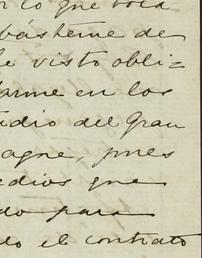 que toca
básteme de
le visto obli-
darme en los
udio del Gran
magne, pues
edios que
do para
do el contrato